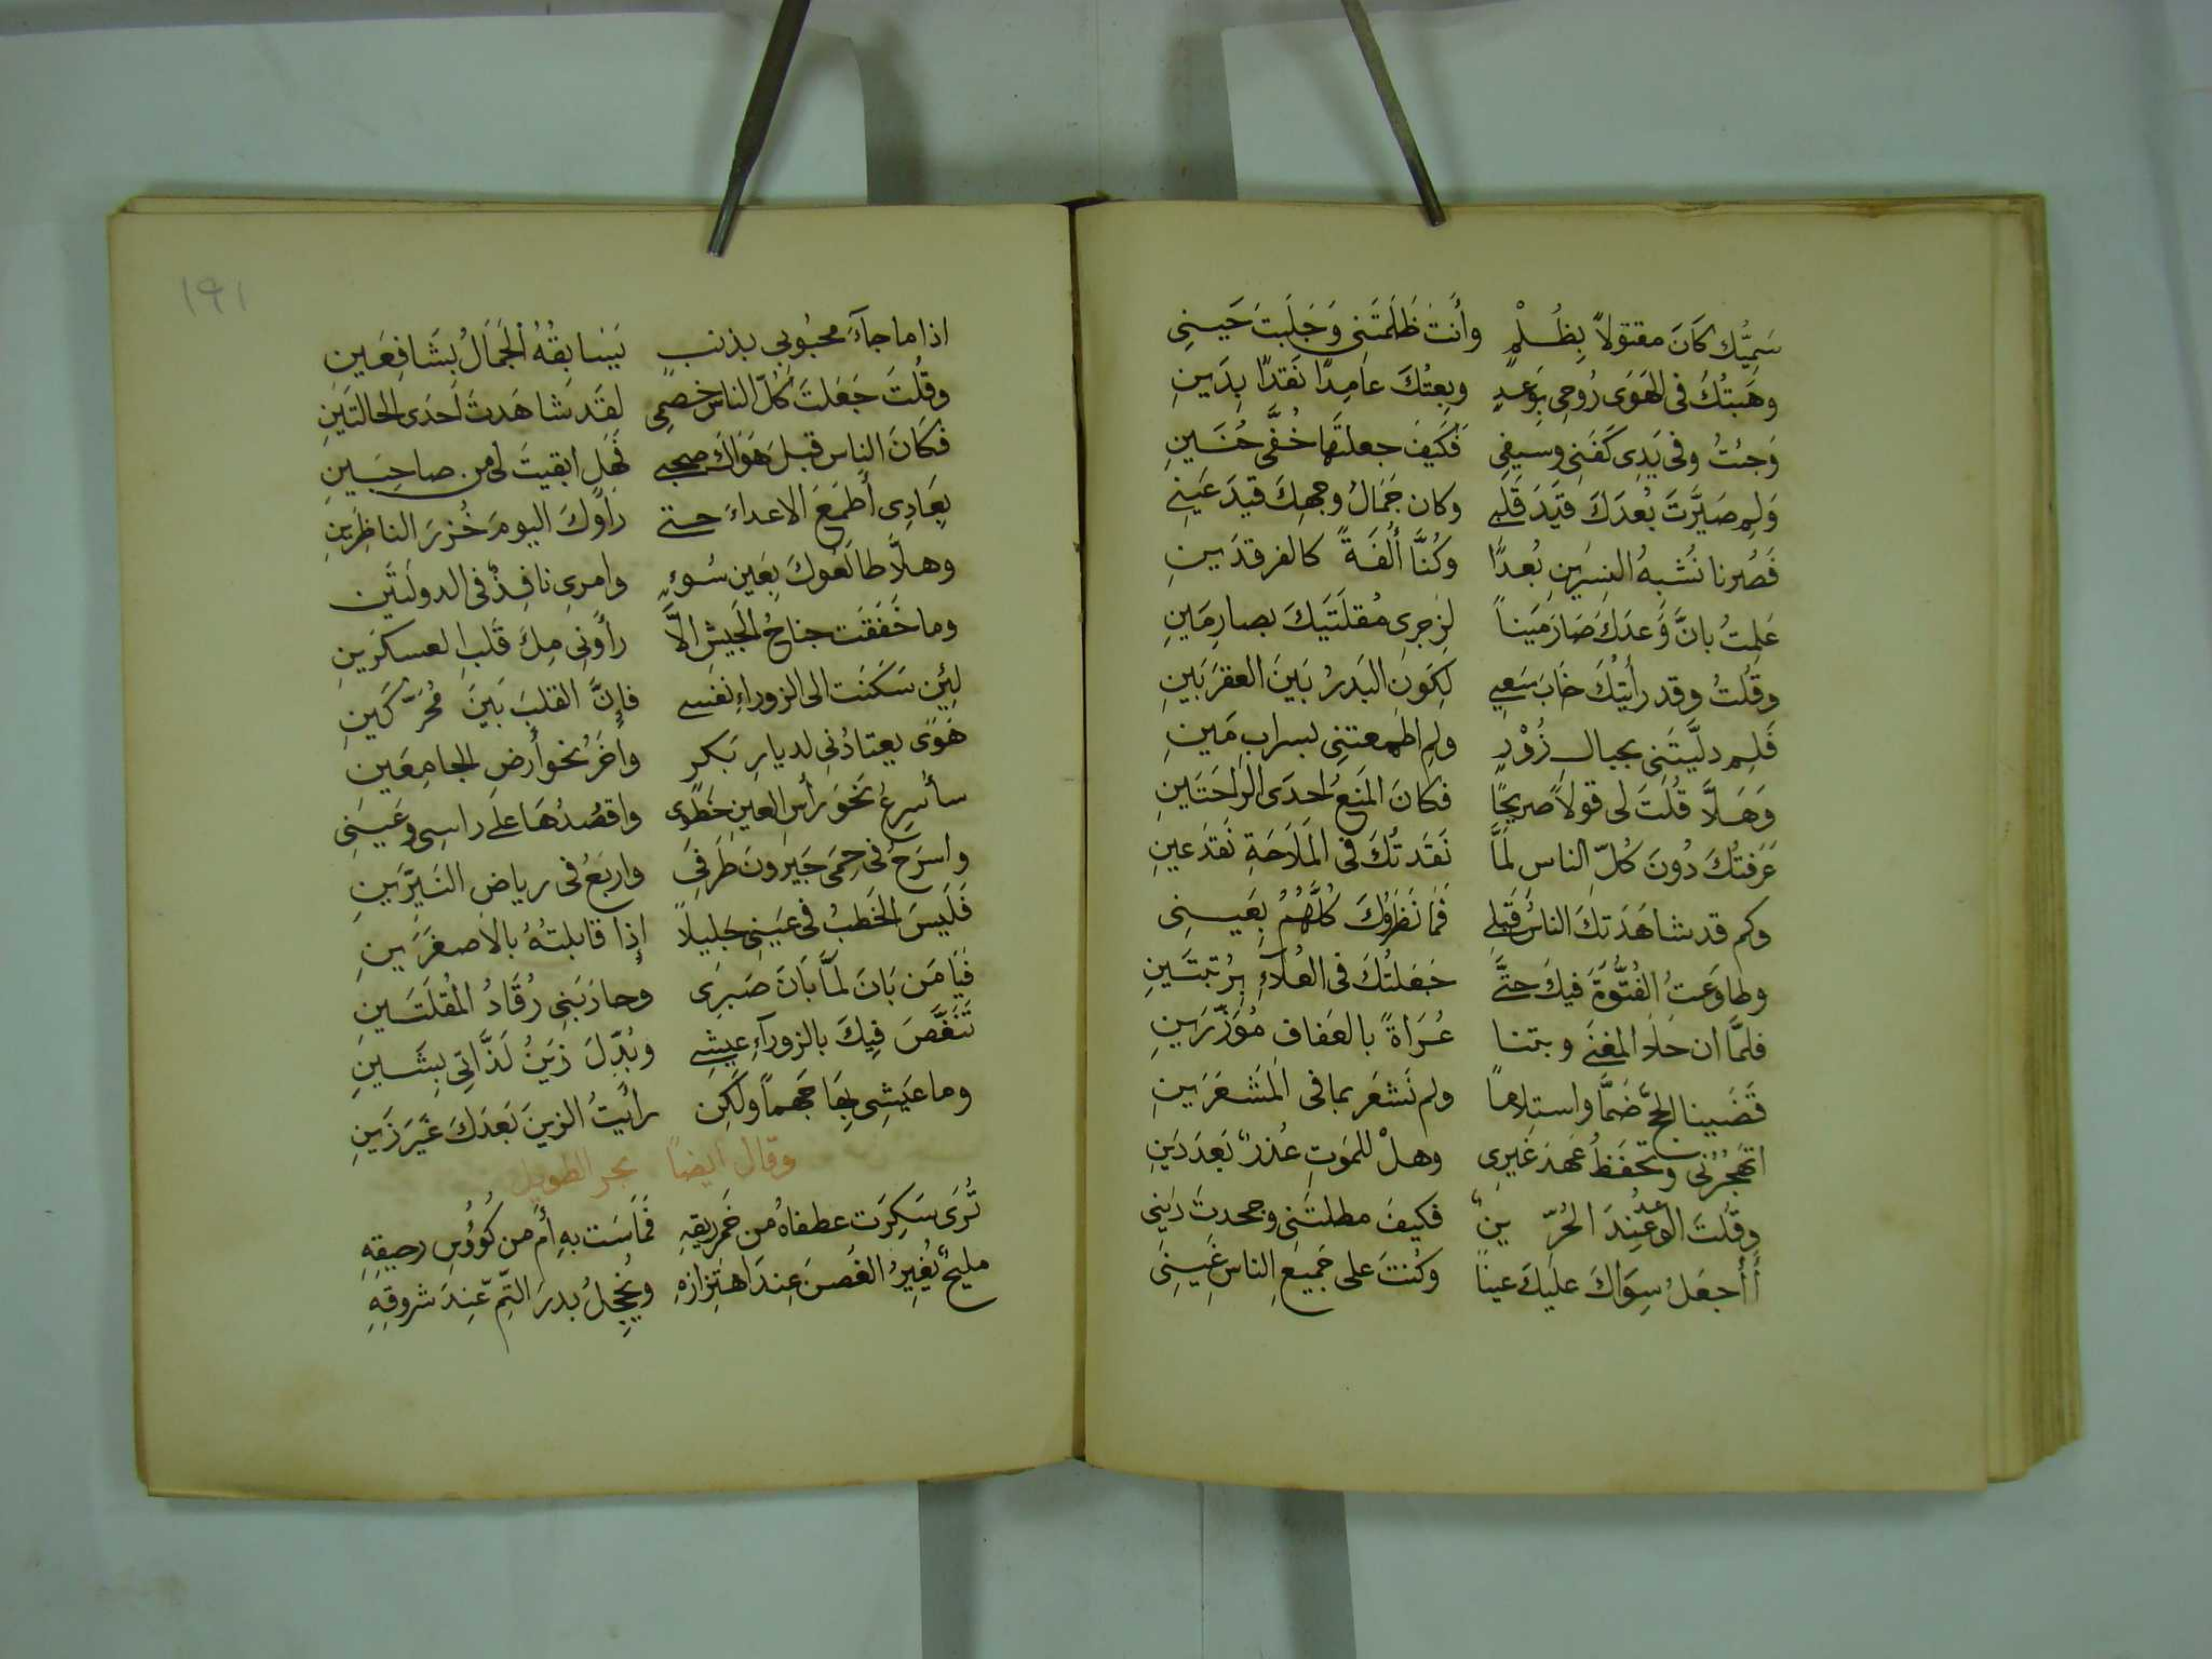 سَمِيُّك كَانَ مقتولاً بِظُلْمٍ وأنت ظَلَمتَنِي وَجَلَبتَ حَيْنِي
وهَبتُكَ في الهَوَى رُوحِي بِوَعدٍ وبِعتُكَ عامِدًا نَقدًا بِدَينِ
وَجئتُ وفي يَدِي كَفَنِي وسيفي فَكَيفَ جعلتَها خُفَّي حُنَينِ
وَلِم صَيَّرتَ بُعدَكَ قَيدَ قَلبي وكان جَمَالُ وجهِكَ قيدَ عَينِي
فَصُرنا نُشبِهُ النِسرَينِ بُعدًا وكُنَّا أُلفَةً كالفرقدَينِ
عَلِمتُ بانَّ وَعدَكَ صَارَ مَيناً لِزجرِي مُقلَتَيكَ بصارِمَينِ
وقُلتُ وقد رأيتُكَ خَابَ سَعيي لِكَونِ البَدرُ بَينَ العقرَبَينِ
فَلِم دلَّيتَنِي بحبال زُوْرٍ ولِم اطمعتنِي بسرابِ مَينِ
وَهَلاَّ قُلتَ لي قولاً صريحًا فكانَ المَنعُ احدَى الرَاحَتَينِ
عَرَفتُكَ دُونَ كُلِّ الناس لَمَّا نَقَدتُكَ في المَلاَحَةِ نَقدَعينِ
وكم قد شاهَدَتكَ الناسُ قَبلي فَمَا نَظَرُوكَ كُلُّهُمُ بِعَينِي
وطاوَعتُ الفُتُوَّةَ فيكَ حتَّى جَعَلتُكَ في العُلآءِ بِرُتبتَينِ
فلمَّا ان خلا المغنَى وبتنا عُرَاةً بالعَفاف مُؤَزَّرَينِ
قَضَينا الحجَّ ضَمًّا واستِلاما ولم نَشعَر بما في المَشعَرَينِ
اتَهجُرُني وتحفَظُ عَهدَ غَيرِي وهلْ للمَوتِ عُذرٌ بَعدَ دَينِ
وقلتَ الوَعدُ عِندَ الحُرِّ دَينٌ فكيفَ مطلتَنِي وجحدتَ دَينِي
أأجعَلُ سِوَاكَ علَيكَ عيناً وكُنتَ على جَميعِ الناسِ عَينِي
١٩١
اذا ما جآءَ محبُوبي بذنبٍ يَسَابقُهُ الجَمَالُ بشَافِعَينِ
وقُلتَ جَعَلتَ كُلَّ الناس خصمِي لقَد شَاهَدتَ احَدَى الحالتَينِ
فكَانَ الناس قبلَ هَوَاكَ صحبي فَهَل ابقيتَ لي من صاحِبَينِ
بِعَادِي أطمَعَ الاعداءَ حتى رأوكَ اليومَ خُزرَ الناظِرَينِ
وهلاَّ طالَعُوكَ بِعَينِ سُوءٍ وامرِي نافِذٌ في الدولَتَين
وما خَفَقَت جناحُ الجَيشِ الاَّ رأوني مِلءَ قَلبِ العسكرَينِ
لئِن سَكَنَت الى الزوراءِ نفسي فإنَّ القلبَ بَينَ مُحَرِّكَينِ
هَوًى يعتادُني لديارِ بَكرٍ وآخَرُ نحوَ أرضِ الجامِعَين
سأُسرِعُ نَحوَ رأسِ العينِ خَطوى واقصُدُهَا على راسِي وعَينِي
واسرَحُ في حِمَى جَيرونَ طَرفِي واربَعُ في رياضِ النَيِّرَينِ
فَلَيسَ الخَطبُ في عَينِي جليلًا إذا قابلتُهُ بالاَصغَرَينِ
فَيَا مَن بَانَ لَمَّا بَانَ صَبرِي وحارَبَنِي رُقَادُ المُقلَتَينِ
تَنَغَّصَ فِيكَ بالزورآءِ عيشي وبُدِّلَ زَينُ لَذَّاتي بِشَينِ
وما عَيشِي بِهَا جَهماً ولَكِن رأيتُ الزينَ بَعدَكَ غَيرَ زَينِ
وقال ايضاً بحر الطويل
تُرَى سَكِرَت عطفاهُ من خَمرِ ريقِهِ فَمَاسَت بهِ أم من كُؤُسِ رحيقِهِ
مليحٌ يُغِيرُ الغُصنَ عِندَ اهتِزازهِ ويُخجِلُ بدرَ التِّمِّ عِندَ شروقِهِ